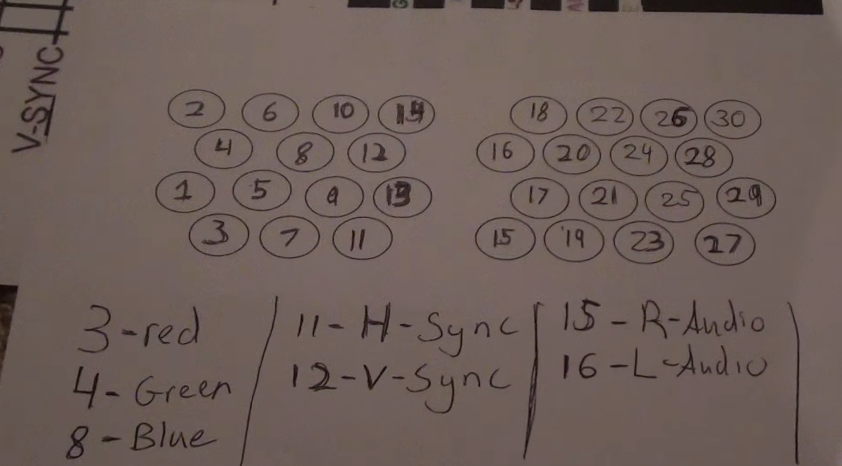 V-SYNC
2 6 10 14 18 22 26 30
4 8 12 16 20 24 28
1 5 9 13 17 21 25 29
3 7 11 15 19 23 27
3-red
4-Green
8-Blue
11-H-Sync
12-V-Sync
15-R-Audio
16-L-Audio